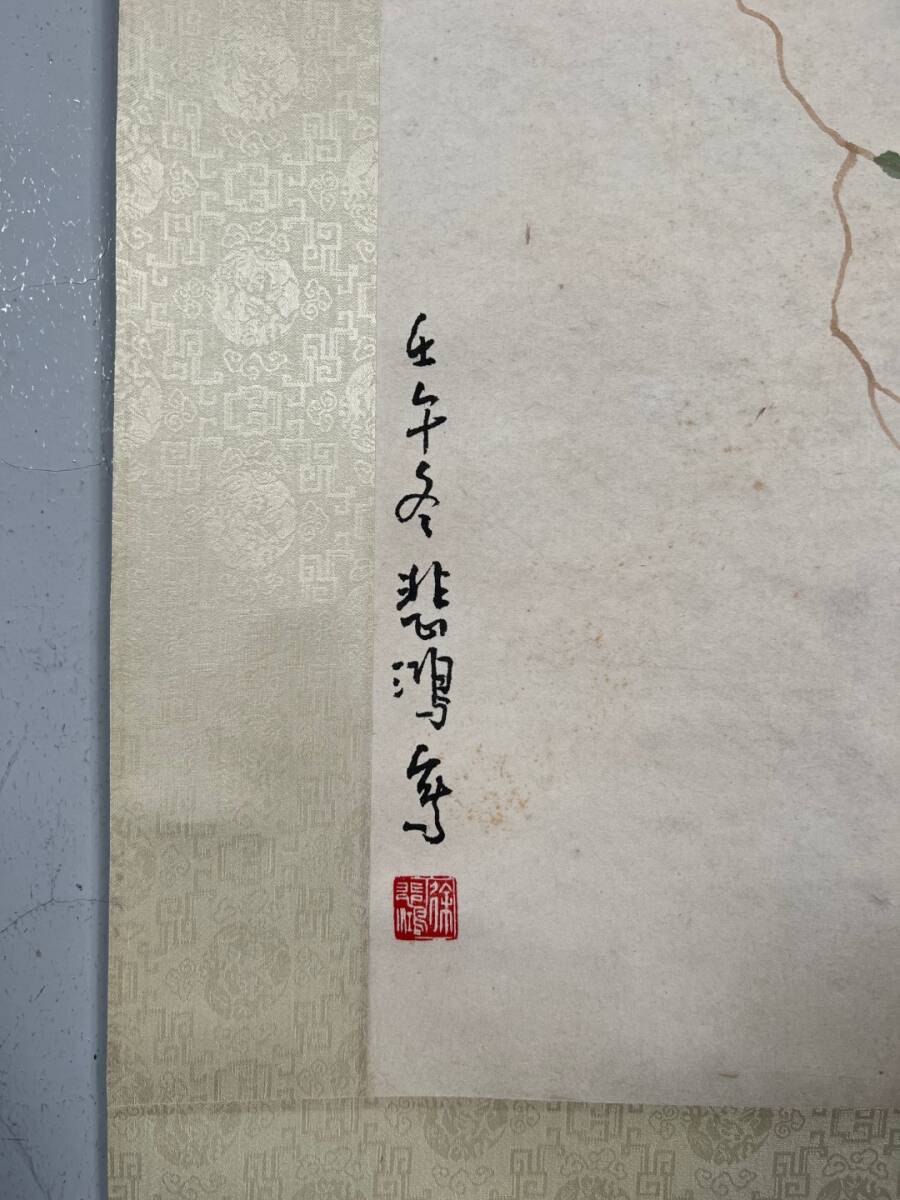 壬午冬悲鴻寫
徐悲鴻